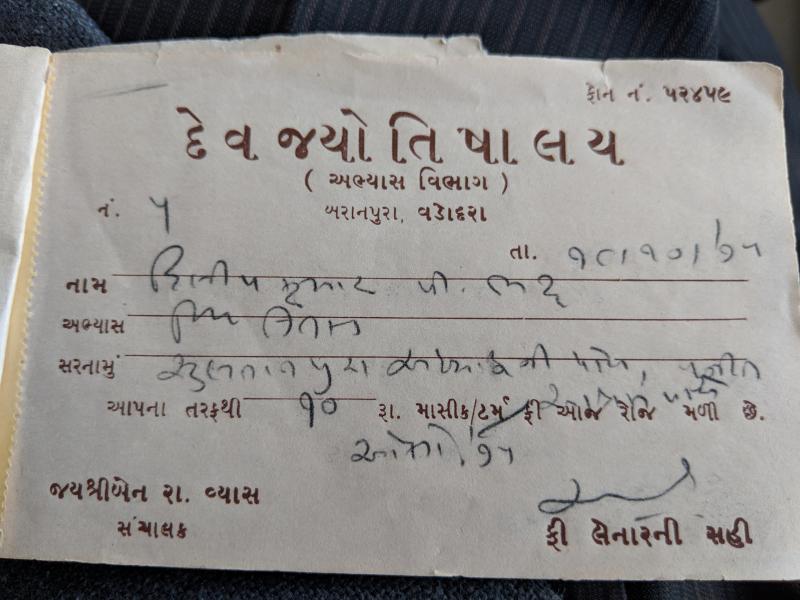 ફોન નં. ૫૨૪૫૯
દેવ જ્યોતિષાલય
( અભ્યાસ વિભાગ )
બરાનપુરા, વડોદરા
નં. ૫
તા. ૧૮/૧૦/૭૫
નામ દિલીપકુમાર પી. ભટ્ટ
અભ્યાસ
સરનામું સુલતાનપુરા અખાડાની પાસે,
આપના તરફથી ૧૦ રૂા. માસીક/ટર્મ ફી ઓજ રોજ મળી છે.
ઓક્ટો. ૭૫
જયશ્રીબેન રા. વ્યાસ
સંચાલક
ફી લેનારની સહી